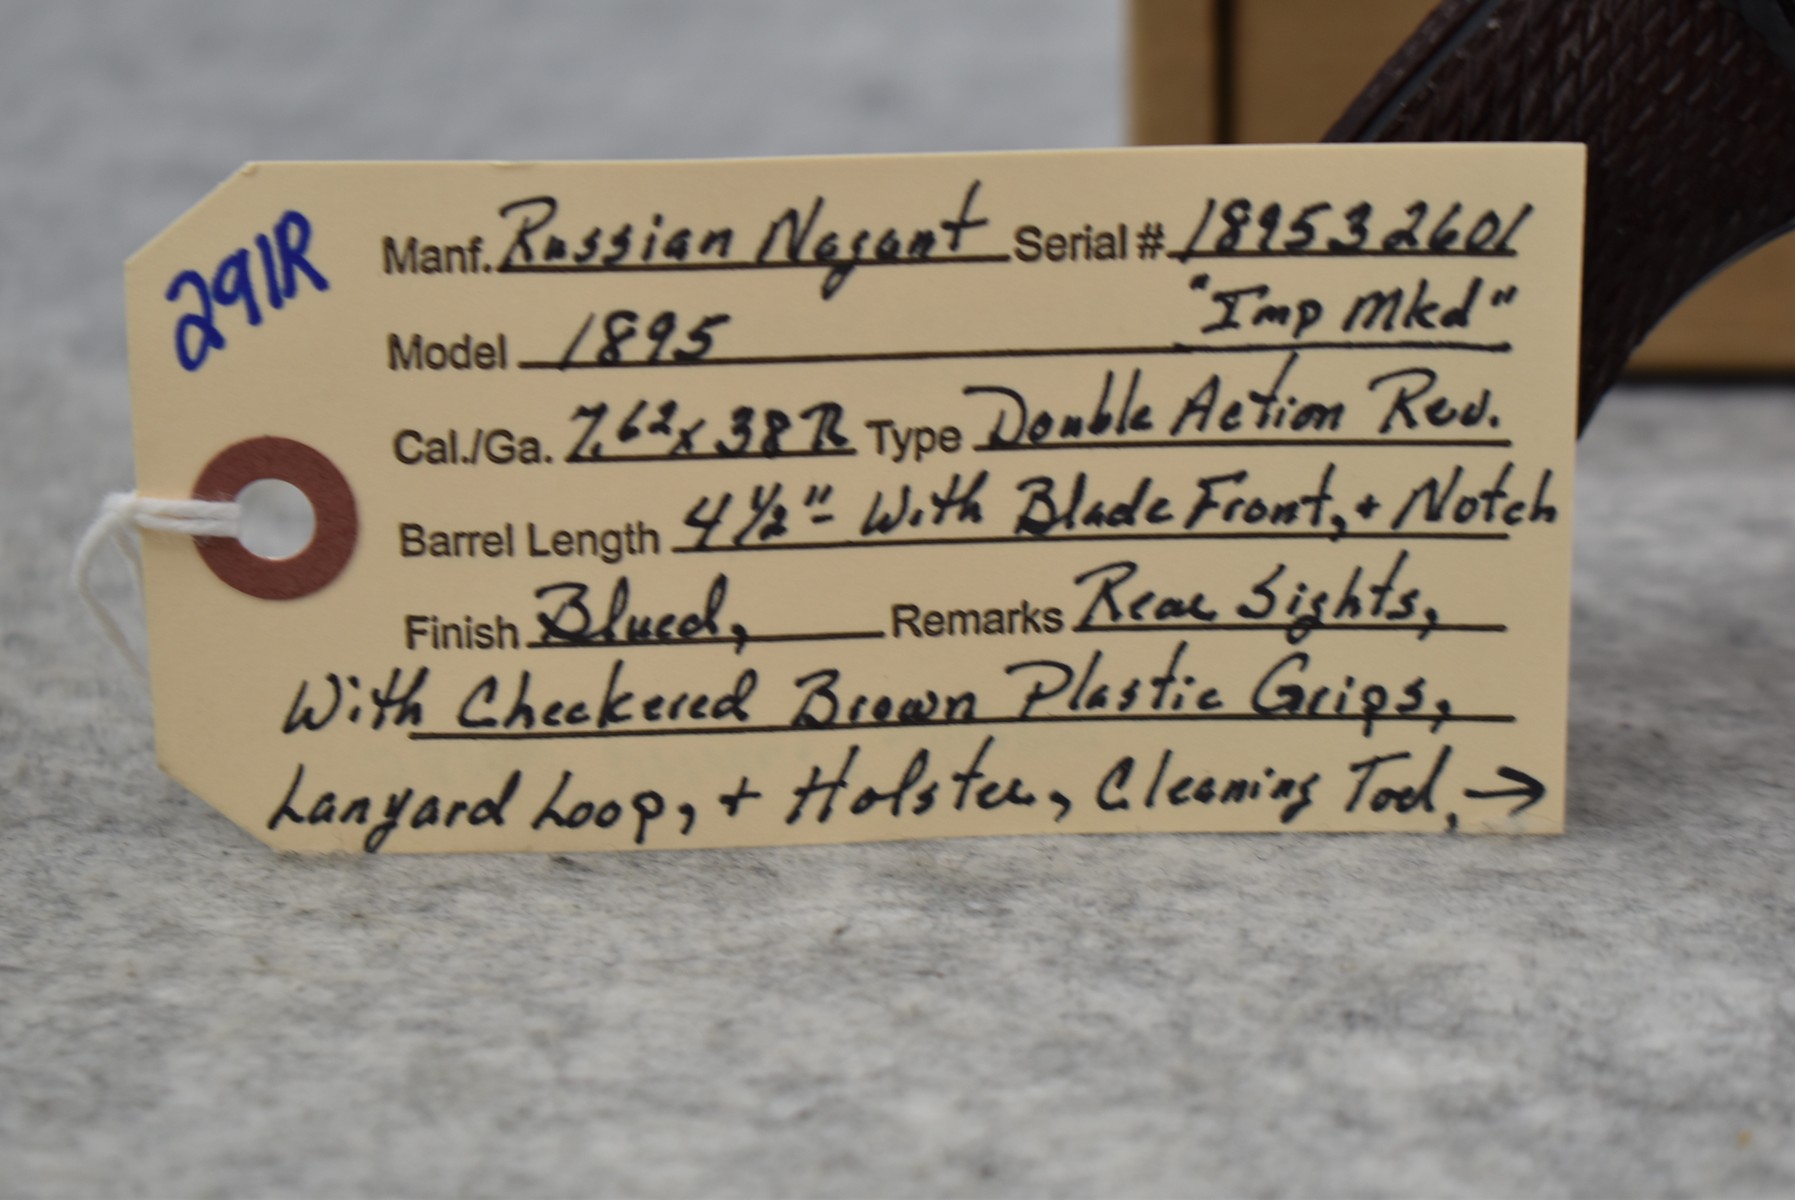 291R
Manf. Russian Nagant Serial # 189532601
"Imp Mkd"
Model 1895
Cal./Ga. 7.62x38R Type Double Action Rev.
Barrel Length 4½"- With Blade Front, + Notch
Finish Blued, Remarks Rear Sights,
With Checkered Brown Plastic Grips,
Lanyard Loop, + Holster, Cleaning Tool, →